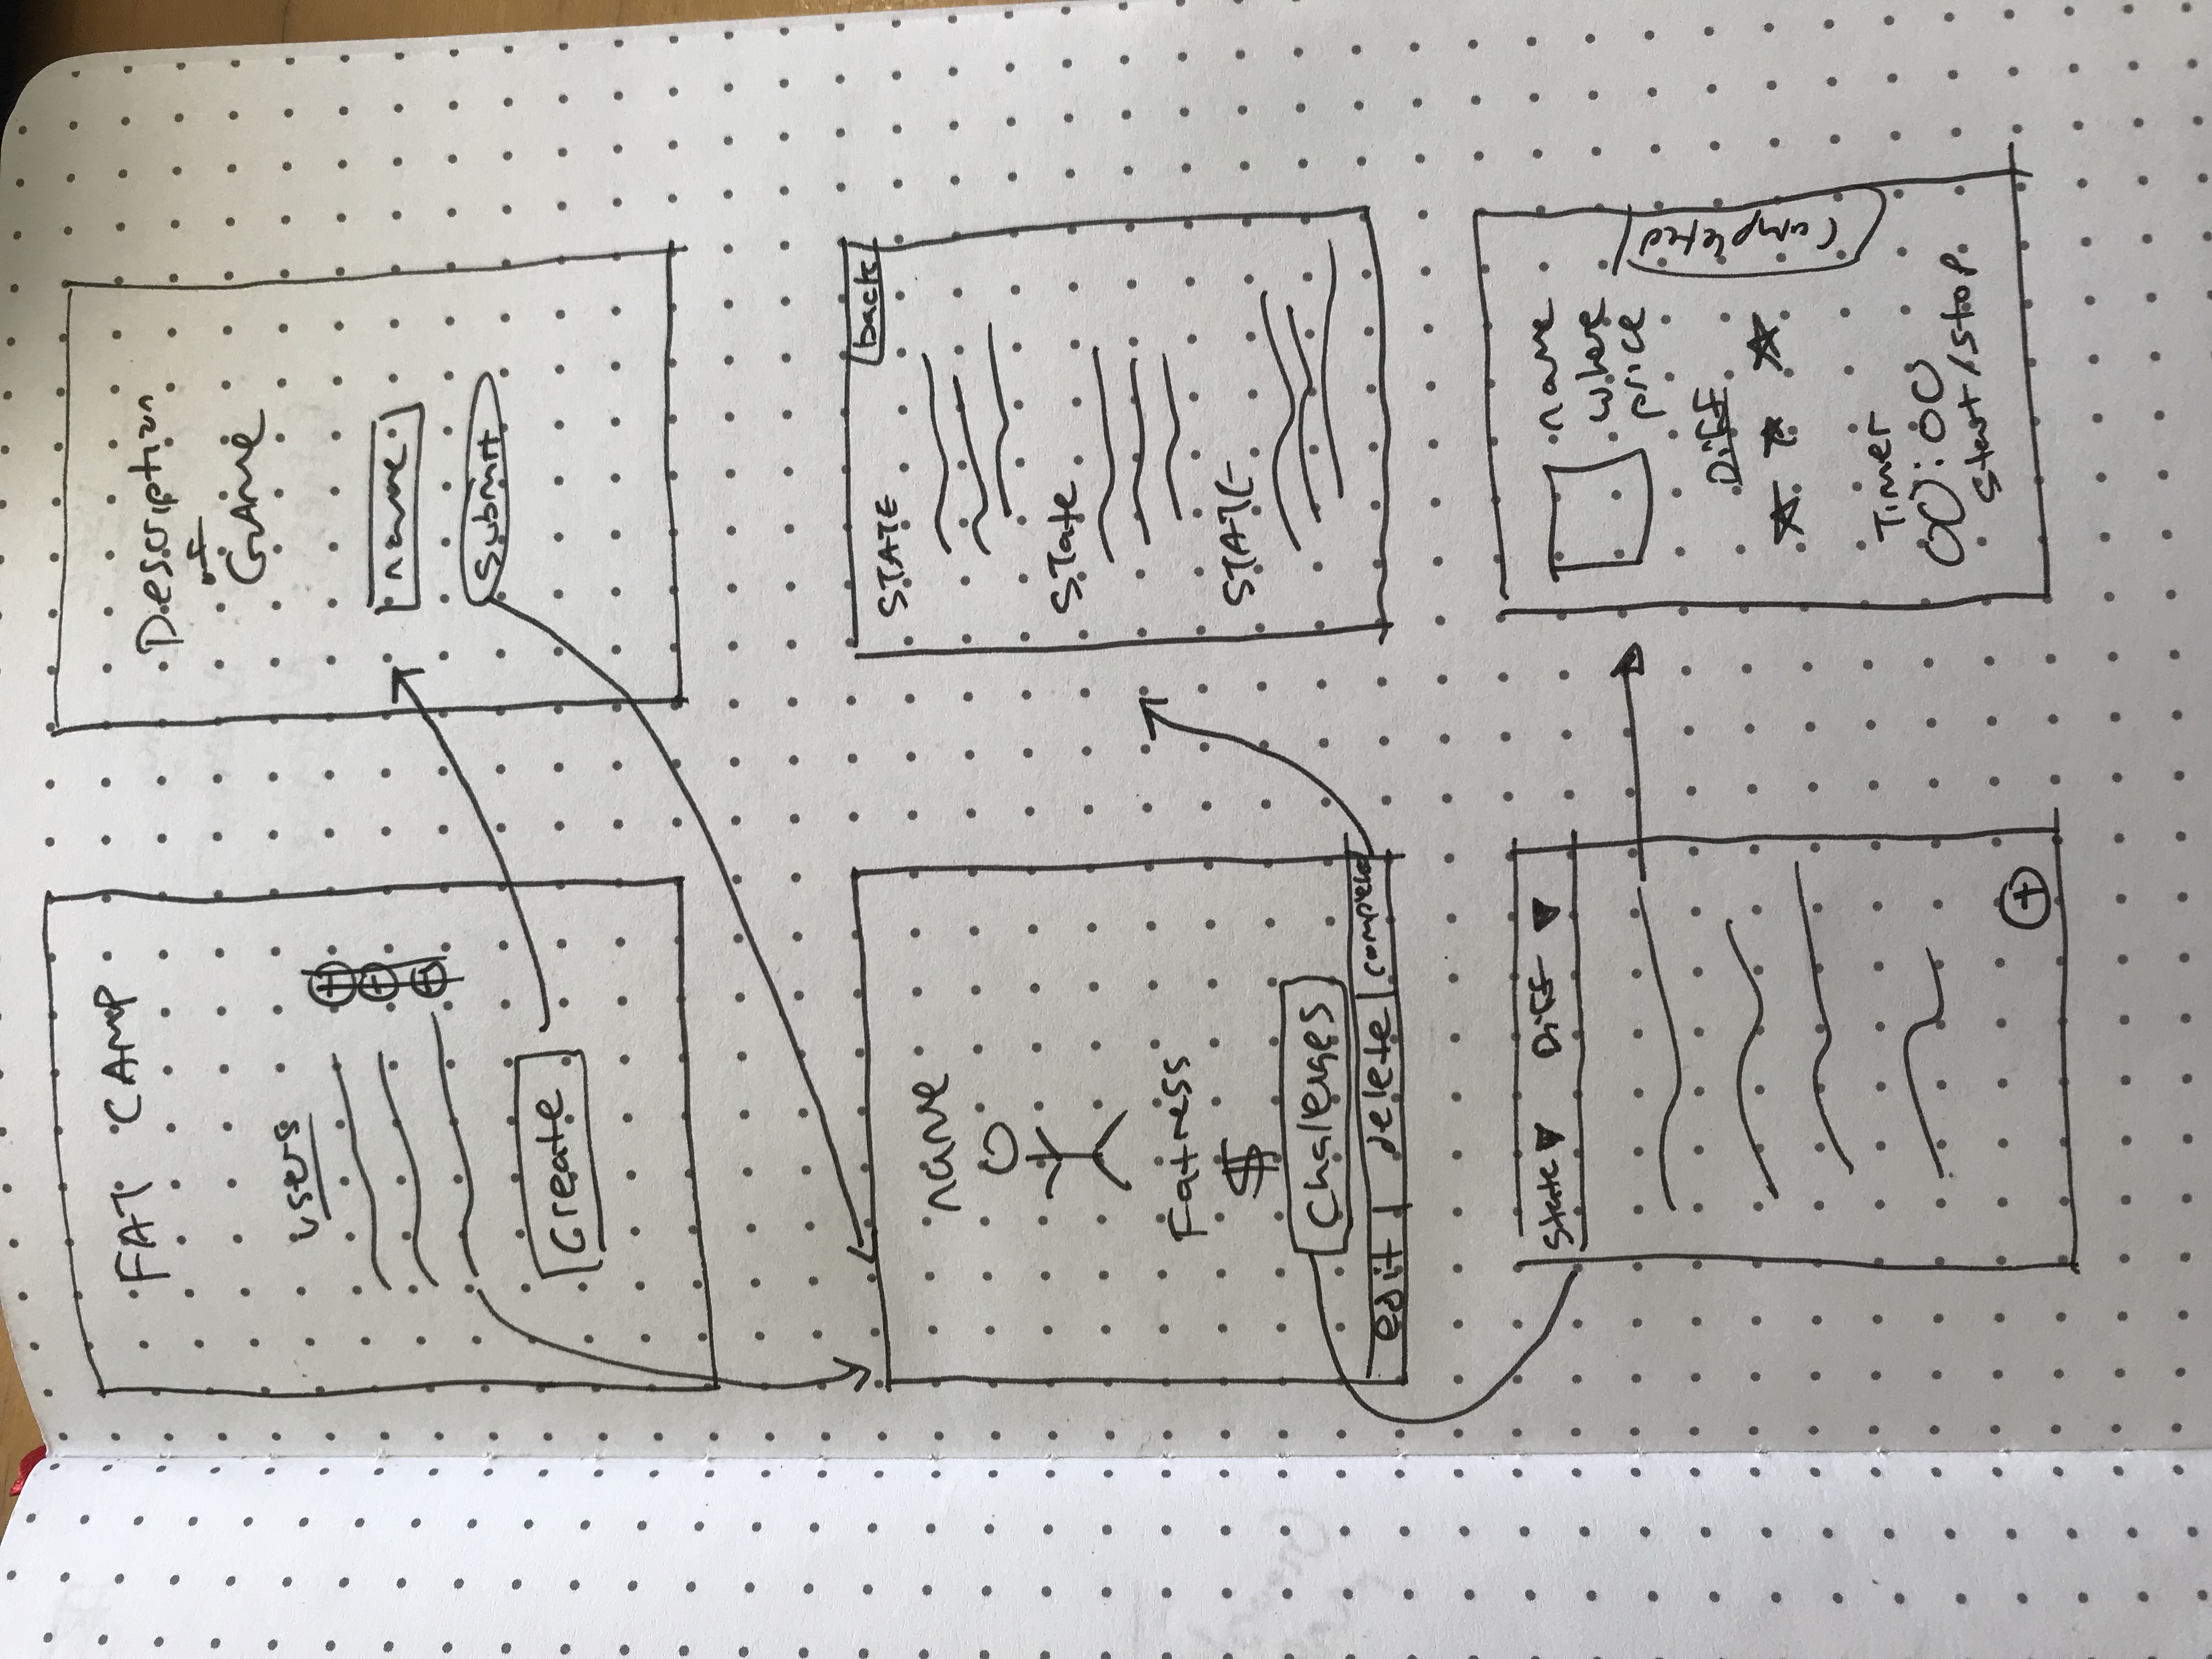 FAT CAMP
users
Create
Description
of
GAME
name
Submit
name
Fatness
$
Challenges
edit delete completed
back
STATE
State
STATE
State ▼ Diff ▼
+
name
where
price
Diff
Timer
00:00
Start/Stop
Completed